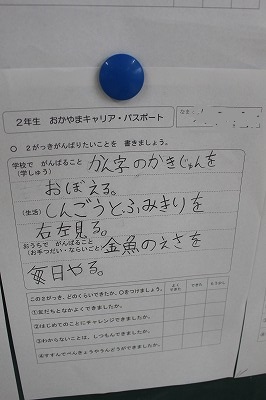 2年生 おかやまキャリア・パスポート
なまえ
○ 2がっきがんばりたいことを 書きましょう。
学校で がんばること
(学しゅう)
かん字のかきじゅんを
おぼえる。
(生活)
しんごうとふみきりを
右左見る。
おうちで がんばること
(お手つだい・ならいごと)
金魚のえさを
毎日やる。
この2がっき、どのくらいできたか、○をつけましょう。
よく できた
できた
もう少し
①友だちとなかよくできましたか。
②はじめてのことにチャレンジできましたか。
③わからないことは、しつもんできましたか。
④すすんでべんきょうやうんどうができましたか。